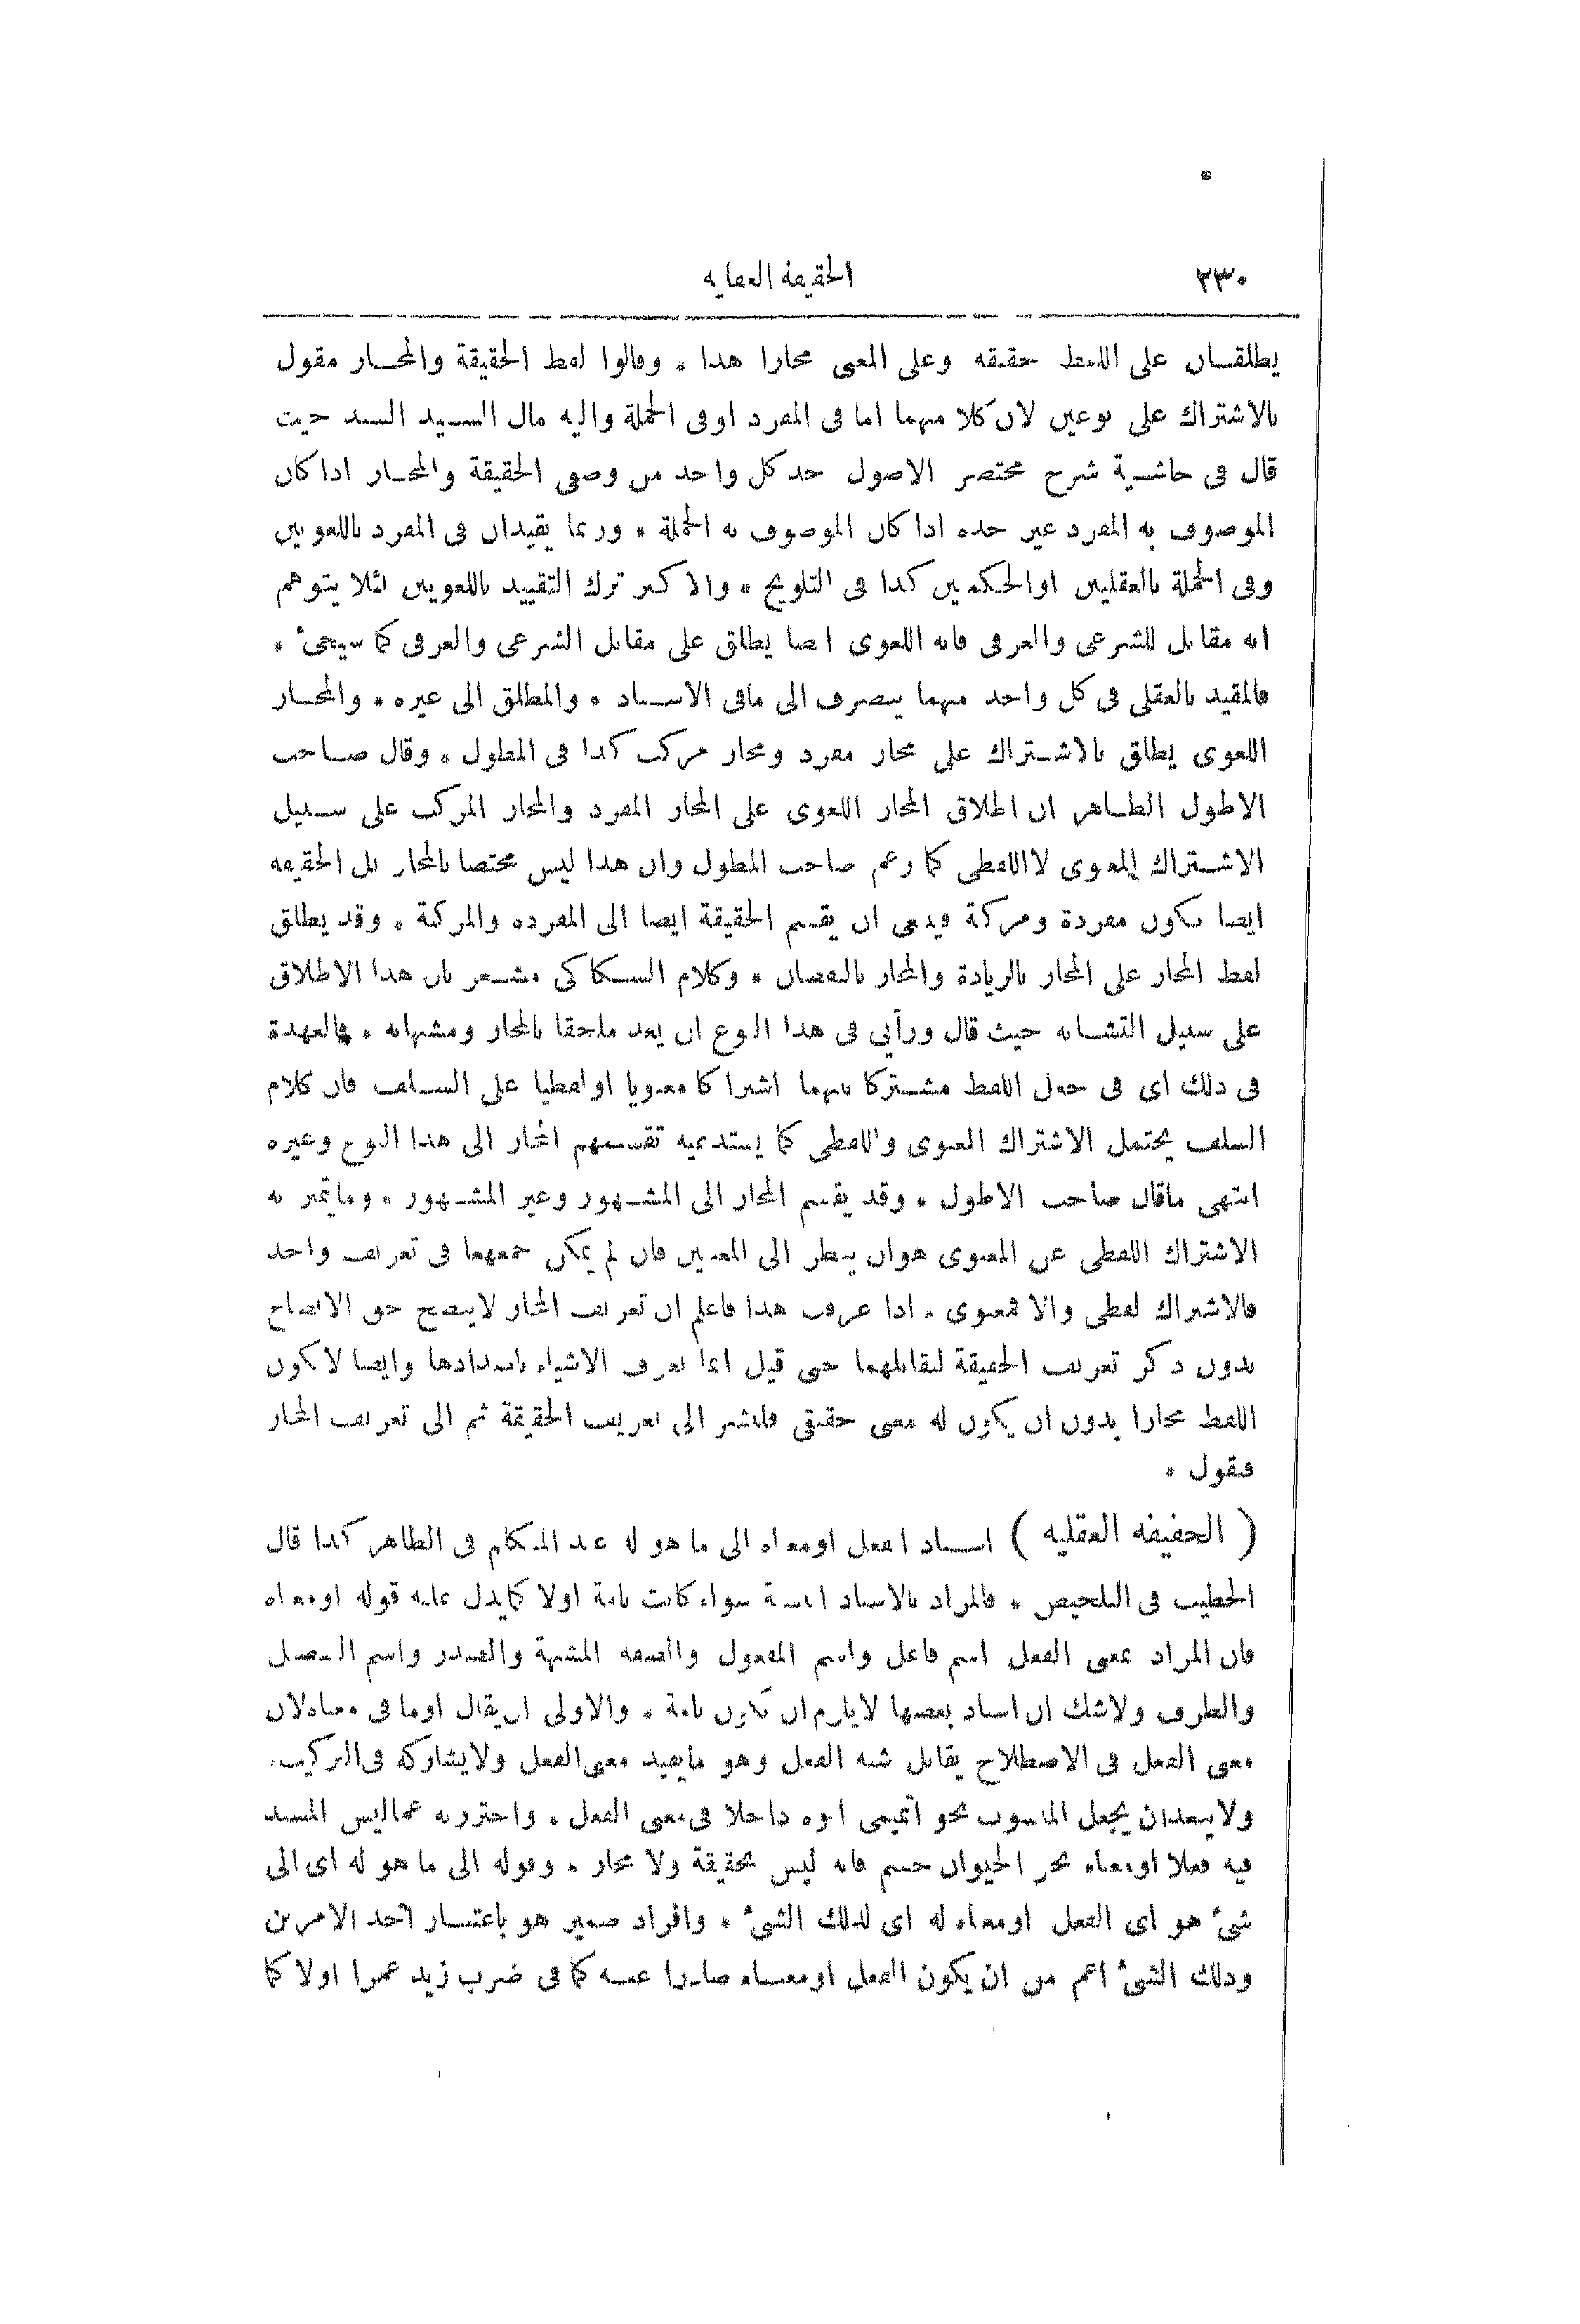 ٣٣٠
الحقيقة العقلية
يطلقان على اللفظ حقيقه وعلى المعنى مجازا هذا * وقالوا لفظ الحقيقة والمجاز مقول
بالاشتراك على نوعين لان كلا منهما اما فى المفرد اوفى الجملة واليه مال السيد السند حيث
قال فى حاشية شرح مختصر الاصول حد كل واحد من وصفى الحقيقة والمجاز اذا كان
الموصوف به المفرد غير حده اذا كان الموصوف به الجملة * وربما يقيدان فى المفرد باللغويين
وفى الجملة بالعقليين اوالحكميين كذا فى التلويح * والاكثر ترك التقييد باللغويين لئلا يتوهم
انه مقابل للشرعى والعرفى فانه اللغوى ايضا يطلق على مقابل الشرعى والعرفى كما سيجئ *
فالمقيد بالعقلى فى كل واحد منهما ينصرف الى مافى الاسناد * والمطلق الى غيره * والمجاز
اللغوى يطلق بالاشتراك على مجاز مفرد ومجاز مركب كذا فى المطول * وقال صاحب
الاطول الظاهر ان اطلاق المجاز اللغوى على المجاز المفرد والمجاز المركب على سبيل
الاشتراك المعنوى لااللفظى كما زعم صاحب المطول وان هذا ليس مختصا بالمجاز بل الحقيقه
ايضا تكون مفردة ومركبة فينبغى ان يقسم الحقيقة ايضا الى المفرده والمركبة * وقد يطلق
لفظ المجاز على المجاز بالزيادة والمجاز بالنقصان * وكلام السكاكى مشعر بان هذا الاطلاق
على سبيل التشابه حيث قال ورأيى فى هذا النوع ان يعد ملحقا بالمجاز ومشبها به * فالعهدة
فى ذلك اى فى جعل اللفظ مشتركا بينهما اشتراكا معنويا اولفظيا على السلف فان كلام
السلف يحتمل الاشتراك المعنوى واللفظى كما يستدعيه تقسيمهم المجاز الى هذا النوع وغيره
انتهى ماقال صاحب الاطول * وقد يقسم المجاز الى المشهور وغير المشهور * وما تميز به
الاشتراك اللفظى عن المعنوى هوان ينظر الى المعنيين فان لم يمكن جمعهما فى تعريف واحد
فالاشتراك لفظى والا فمعنوى * اذا عرفت هذا فاعلم ان تعريف المجاز لايتضح حق الاتضاح
بدون ذكر تعريف الحقيقة لتقابلهما حتى قيل انما تعرف الاشياء باضدادها وايضا لا يكون
اللفظ مجازا بدون ان يكون له معنى حقيقى فلنشر الى تعريف الحقيقة ثم الى تعريف المجاز
فنقول *
( الحقيقه العقليه ) اسناد الفعل اومعناه الى ما هو له عند المتكلم فى الظاهر كذا قال
الخطيب فى التلخيص * فالمراد بالاسناد النسبة سواء كانت تامة اولا كما يدل عليه قوله اومعناه
فان المراد بمعنى الفعل اسم فاعل واسم المفعول والصفه المشبهة والمصدر واسم التفضيل
والظرف ولاشك ان اسناد بعضها لايلزم ان تكون تامة * والاولى ان يقال اوما فى معناه لان
معنى الفعل فى الاصطلاح يقابل شبه الفعل وهو مايفيد معنى الفعل ولا يشاركه فى التركيب.
ولا يبعد ان يجعل المنسوب نحو اتميمى ابوه داخلا فى معنى الفعل * واحترز به عماليس المسند
فيه فعلا اومعناه نحو الحيوان جسم فانه ليس بحقيقة ولا مجاز * وقوله الى ما هو له اى الى
شئ هو اى الفعل اومعناه له اى لذلك الشئ * وافراد ضمير هو باعتبار احد الامرين
وذلك الشئ اعم من ان يكون الفعل اومعناه صادرا عنه كما فى ضرب زيد عمرا اولا كما